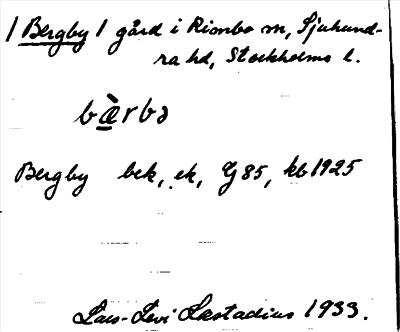 / Bergby / gård i Rimbo sn, Sjuhund-
ra hd, Stockholms l.
bæ̀rbə
Bergby bek, ek, G 85, kb 1925
Lars-Levi Læstadius 1933.